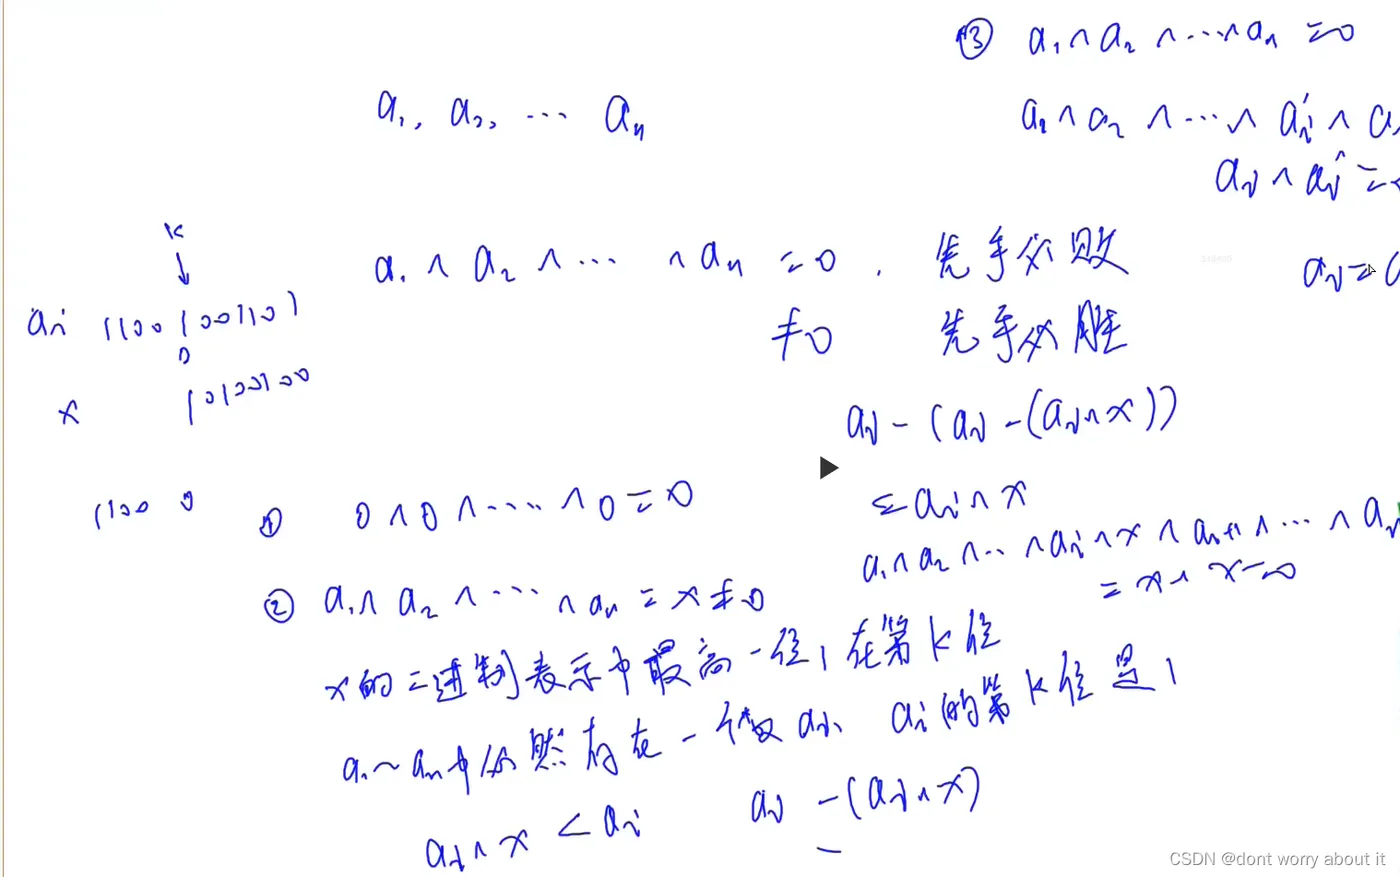 ③ a₁ ^ a₂ ^ ... ^ aₙ = 0
a₁, a₂, ... aₙ
a₁ ^ a₂ ^ ... ^ aᵢ' ^ a
aᵢ ^ aᵢ' =
k
↓
a₁ ^ a₂ ^ ... ^ aₙ = 0. 先手必败
aᵢ =
aᵢ 11001001101
0
≠0 先手必胜
x 10100100
aᵢ - (aᵢ - (aᵢ ^ x))
1100 0
① 0 ^ 0 ^ ... ^ 0 = 0
= aᵢ ^ x
a₁ ^ a₂ ^ ... ^ aᵢ ^ x ^ aᵢ₊₁ ^ ... ^ aₙ
= x ^ x = 0
② a₁ ^ a₂ ^ ... ^ aₙ = x ≠ 0
x的二进制表示中最高一位1在第k位
a₁~aₙ中必然存在一个数aᵢ, aᵢ的第k位是1
aᵢ ^ x < aᵢ aᵢ - (aᵢ ^ x)
CSDN @dont worry about it